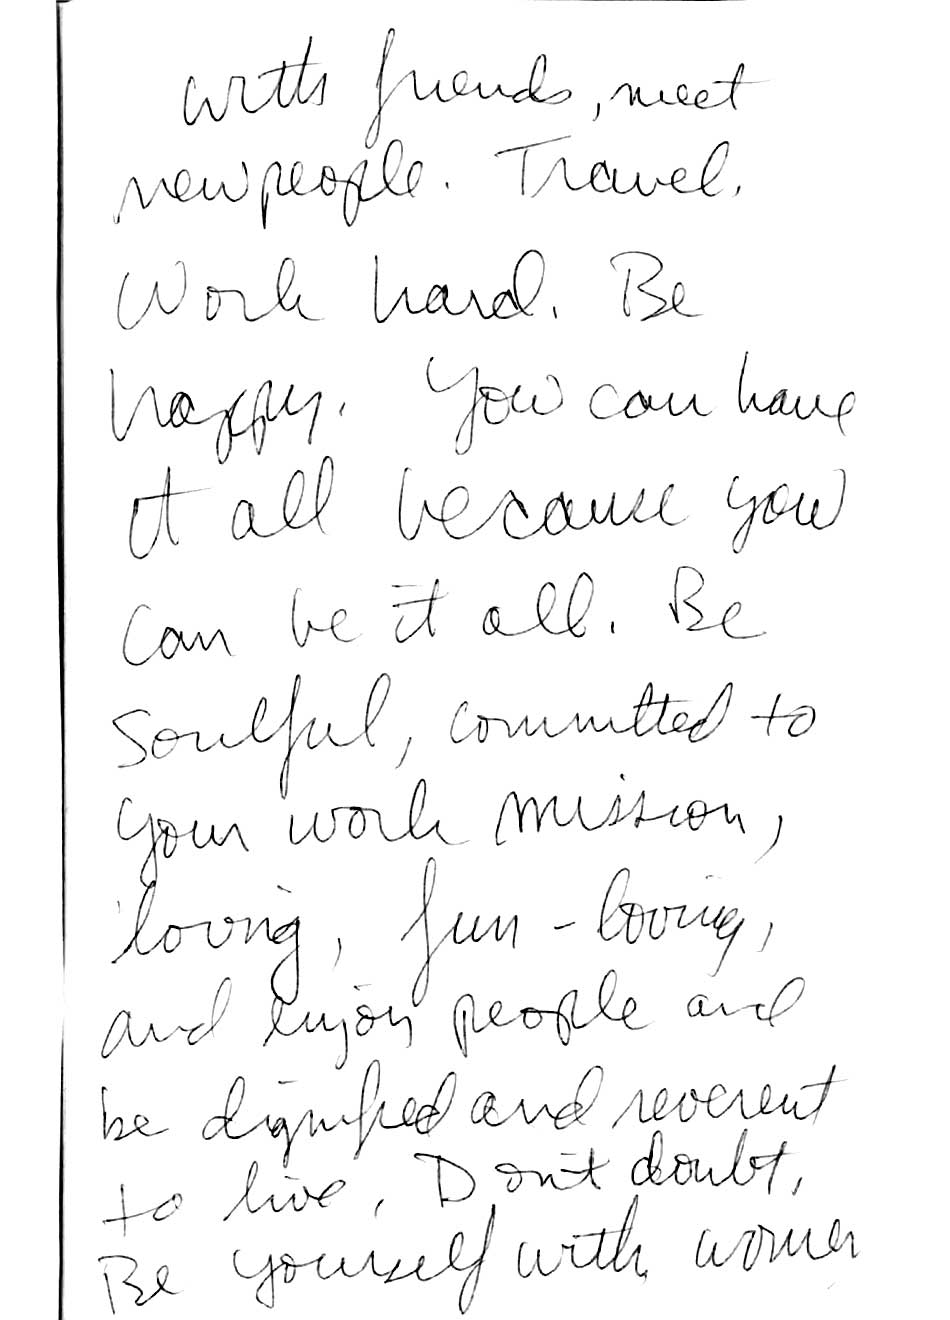 with friends, meet
new people. Travel.
Work hard. Be
happy. You can have
it all because you
can be it all. Be
soulful, committed to
your work mission,
loving, fun-loving,
and enjoy people and
be dignified and reverent
to live. Don't doubt,
Be yourself with women